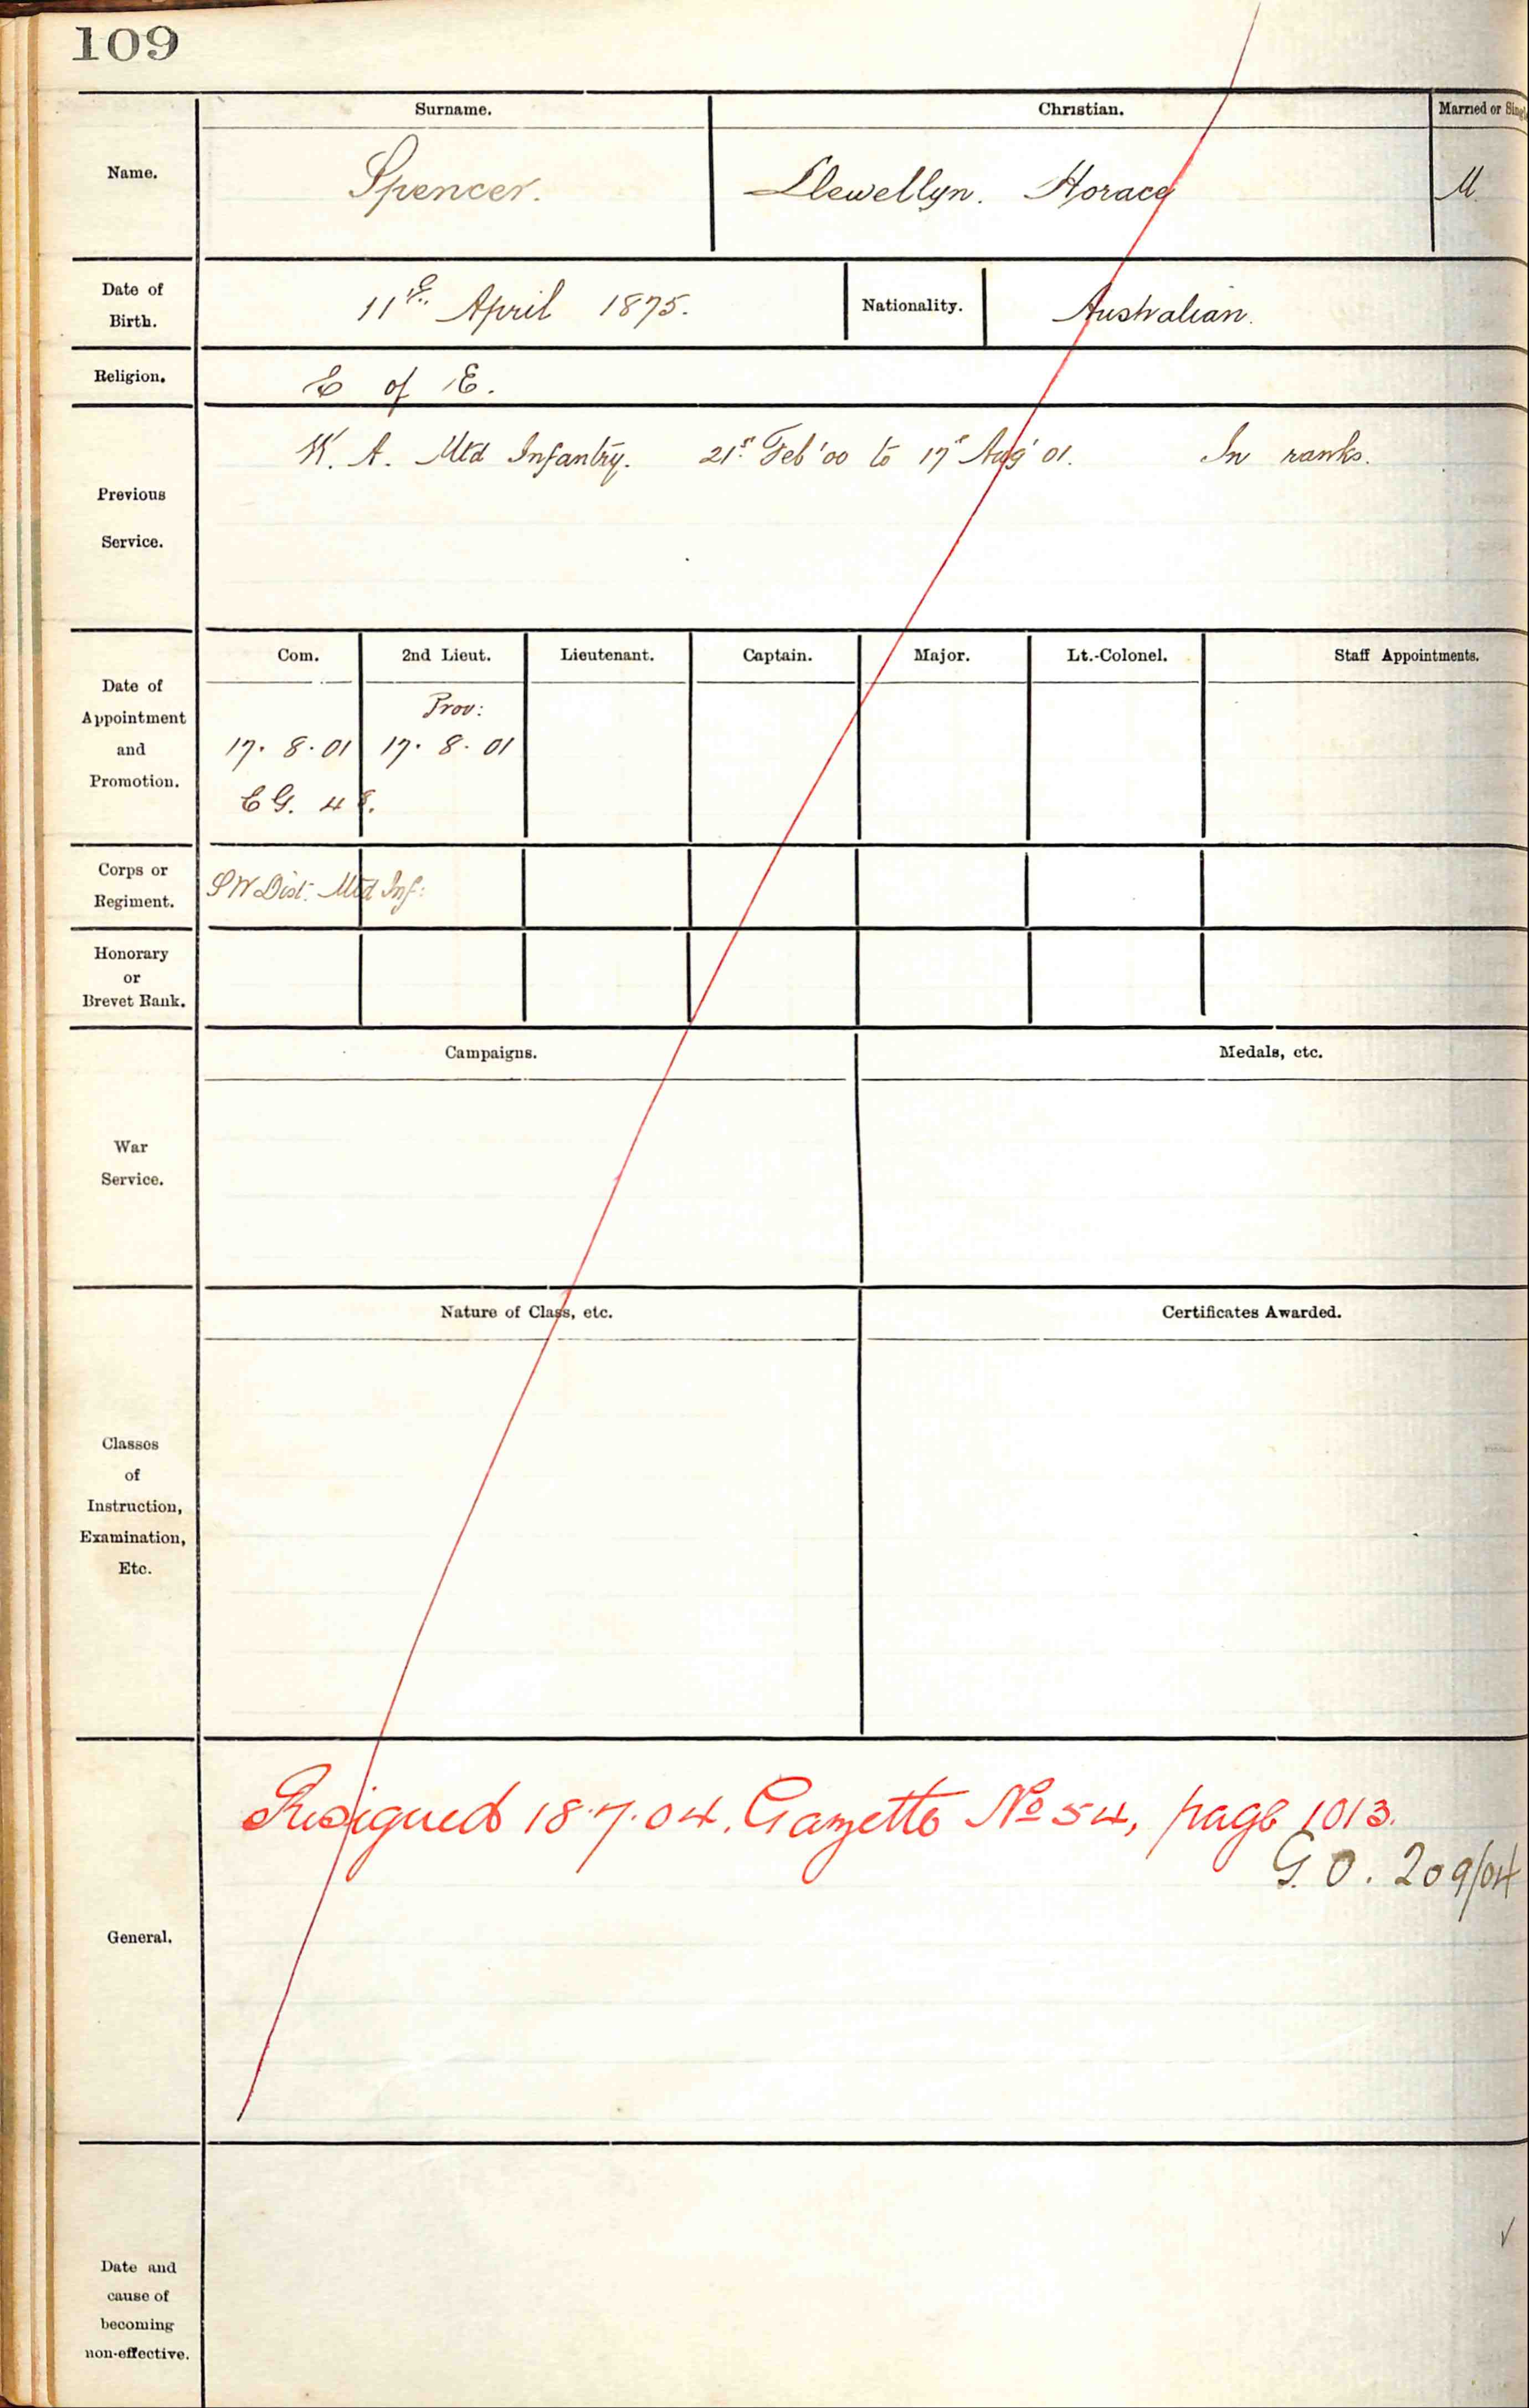 109
Surname. Christian. Married or Single
Name. Spencer. Llewellyn. Horace M.
Date of Birth. 11th April 1875. Nationality. Australian.
Religion. C of E.
Previous Service. W. A. Mtd Infantry. 21st Feb '00 to 17th Aug '01. In ranks.
Com. 2nd Lieut. Lieutenant. Captain. Major. Lt.-Colonel. Staff Appointments.
Date of Appointment and Promotion.
Prov:
17. 8. 01 17. 8. 01
C G. 48.
Corps or Regiment. S W Dist. Mtd Inf:
Honorary or Brevet Rank.
Campaigns. Medals, etc.
War Service.
Nature of Class, etc. Certificates Awarded.
Classes of Instruction, Examination, Etc.
Resigned 18.7.04. Gazette No 54, page 1013.
G.O. 209/04
General.
Date and cause of becoming non-effective.